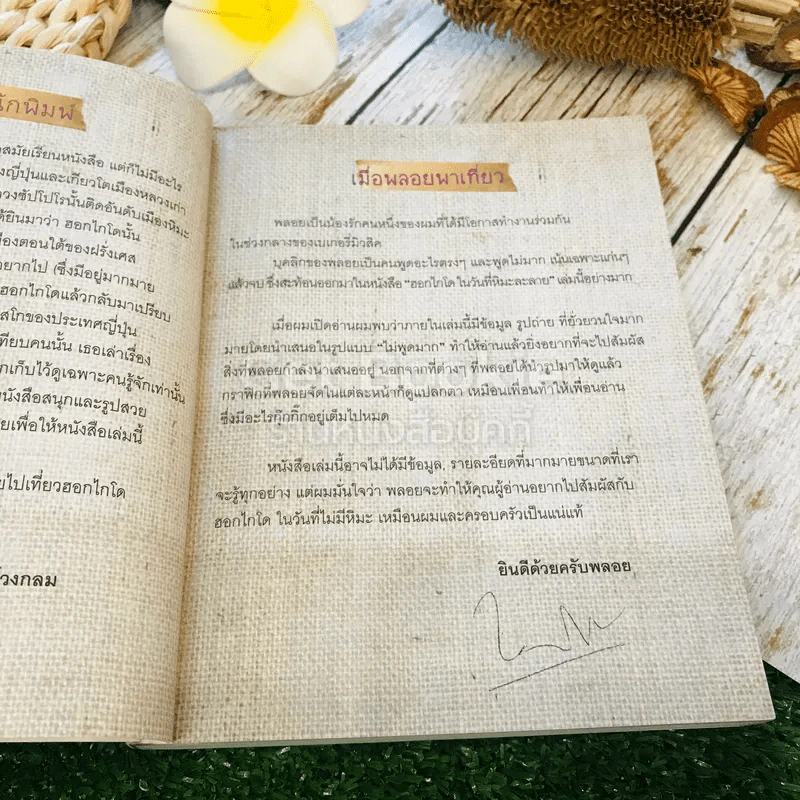 นักพิมพ์
สมัยเรียนหนังสือ แต่ก็ไม่มีอะไร
ญี่ปุ่นและเที่ยวโตเมืองหลวงเก่า
วงซัปโปโรนั้นติดอันดับเมืองหิมะ
ได้ยินมาว่า ฮอกไกโดนั้น
มืองตอนใต้ของฝรั่งเศส
อยากไป (ซึ่งมีอยู่มากมาย
ฮอกไกโดแล้วกลับมาเปรียบ
สโกของประเทศญี่ปุ่น
เทียบคนนั้น เธอเล่าเรื่อง
กเก็บไว้ดูเฉพาะคนรู้จักเท่านั้น
หนังสือสนุกและรูปสวย
ยเพื่อให้หนังสือเล่มนี้
ไปเที่ยวฮอกไกโด
วงกลม
เมื่อพลอยพาเที่ยว
พลอยเป็นน้องรักคนหนึ่งของผมที่ได้มีโอกาสทำงานร่วมกัน
ในช่วงกลางของเบเกอรี่มิวสิค
บุคลิกของพลอยเป็นคนพูดอะไรตรงๆ และพูดไม่มาก เน้นเฉพาะแก่นๆ
แล้วจบ ซึ่งสะท้อนออกมาในหนังสือ “ฮอกไกโด ในวันที่หิมะละลาย” เล่มนี้อย่างมาก
เมื่อผมเปิดอ่านผมพบว่าภายในเล่มนี้มีข้อมูล รูปถ่าย ที่ยั่วยวนใจมาก
มายโดยนำเสนอในรูปแบบ “ไม่พูดมาก” ทำให้อ่านแล้วยิ่งอยากที่จะไปสัมผัส
สิ่งที่พลอยกำลังนำเสนออยู่ นอกจากที่ต่างๆ ที่พลอยได้นำรูปมาให้ดูแล้ว
กราฟิกที่พลอยจัดในแต่ละหน้าก็ดูแปลกตา เหมือนเพื่อนทำให้เพื่อนอ่าน
ซึ่งมีอะไรกุ๊กกิ๊กอยู่เต็มไปหมด
ร้านหนังสือบุ๊คกี้
หนังสือเล่มนี้อาจไม่ได้มีข้อมูล, รายละอียดที่มากมายขนาดที่เรา
จะรู้ทุกอย่าง แต่ผมมั่นใจว่า พลอยจะทำให้คุณผู้อ่านอยากไปสัมผัสกับ
ฮอกไกโด ในวันที่ไม่มีหิมะ เหมือนผมและครอบครัวเป็นแน่แท้
ยินดีด้วยครับพลอย